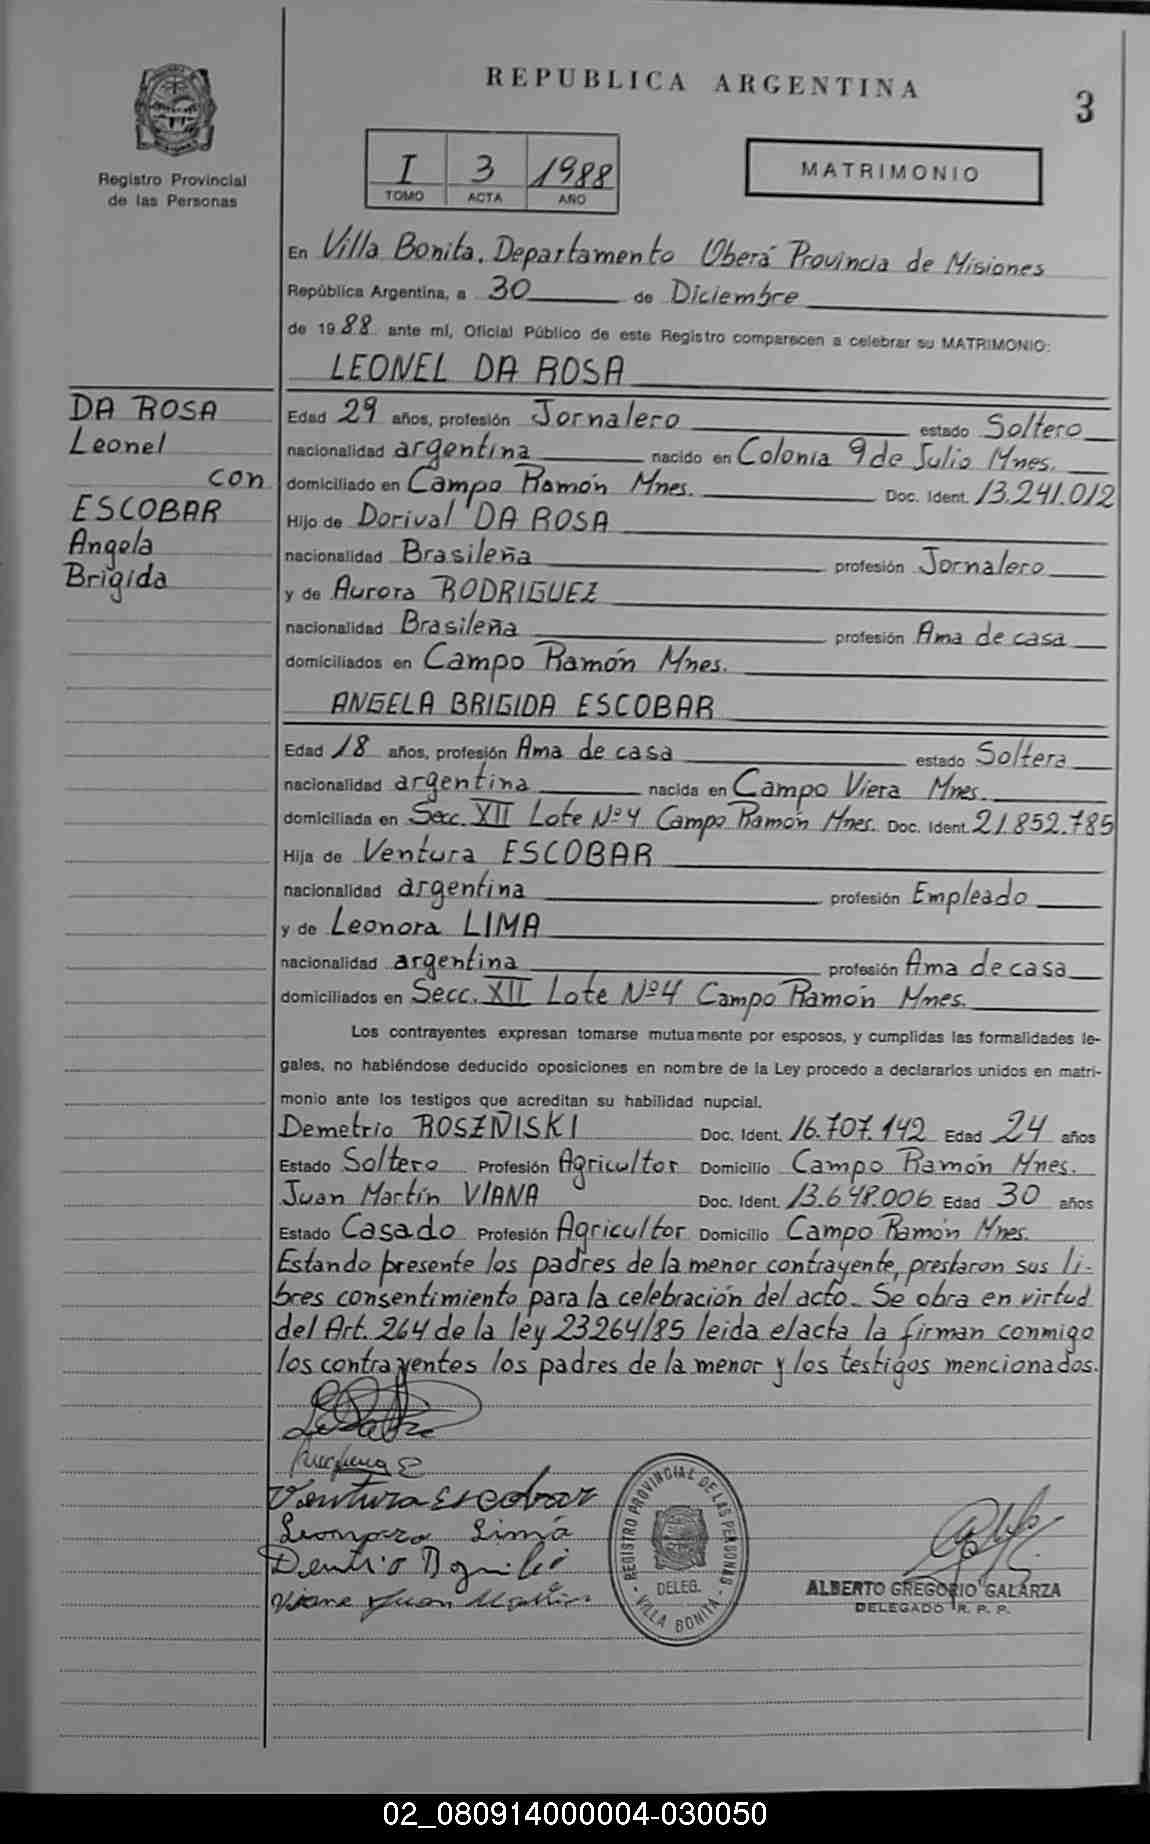 REPUBLICA ARGENTINA
3
Registro Provincial
de las Personas
I 3 1988
TOMO ACTA AÑO
MATRIMONIO
En Villa Bonita. Departamento Oberá Provincia de Misiones
República Argentina, a 30 de Diciembre
de 1988 ante mí, Oficial Público de este Registro comparecen a celebrar su MATRIMONIO:
LEONEL DA ROSA
DA ROSA
Leonel
con
ESCOBAR
Angela
Brigida
Edad 29 años, profesión Jornalero estado Soltero
nacionalidad argentina nacido en Colonia 9 de Julio Mnes.
domiciliado en Campo Ramón Mnes. Doc. Ident. 13.241.012
Hijo de Dorival DA ROSA
nacionalidad Brasileña profesión Jornalero
y de Aurora RODRIGUEZ
nacionalidad Brasileña profesión Ama de casa
domiciliados en Campo Ramón Mnes.
ANGELA BRIGIDA ESCOBAR
Edad 18 años, profesión Ama de casa estado Soltera
nacionalidad argentina nacida en Campo Viera Mnes.
domiciliada en Secc. XII Lote Nº4 Campo Ramón Mnes. Doc. Ident. 21.852.785
Hija de Ventura ESCOBAR
nacionalidad argentina profesión Empleado
y de Leonora LIMA
nacionalidad argentina profesión Ama de casa
domiciliados en Secc. XII Lote Nº4 Campo Ramón Mnes.
Los contrayentes expresan tomarse mutuamente por esposos, y cumplidas las formalidades le-
gales, no habiéndose deducido oposiciones en nombre de la Ley procedo a declararlos unidos en matri-
monio ante los testigos que acreditan su habilidad nupcial.
Demetrio ROSZÑISKI Doc. Ident. 16.707.142 Edad 24 años
Estado Soltero Profesión Agricultor Domicilio Campo Ramón Mnes.
Juan Martín VIANA Doc. Ident. 13.648.006 Edad 30 años
Estado Casado Profesión Agricultor Domicilio Campo Ramón Mnes.
Estando presente los padres de la menor contrayente, prestaron sus li-
bres consentimiento para la celebración del acto. Se obra en virtud
del Art. 264 de la ley 23264/85 leida el acta la firman conmigo
los contrayentes los padres de la menor y los testigos mencionados.
Ventura Escobar
Lima
Viana Juan Martin
REGISTRO PROVINCIAL DE LAS PERSONAS
DELEG.
- VILLA BONITA -
ALBERTO GREGORIO GALARZA
DELEGADO R. P. P.
02_080914000004-030050